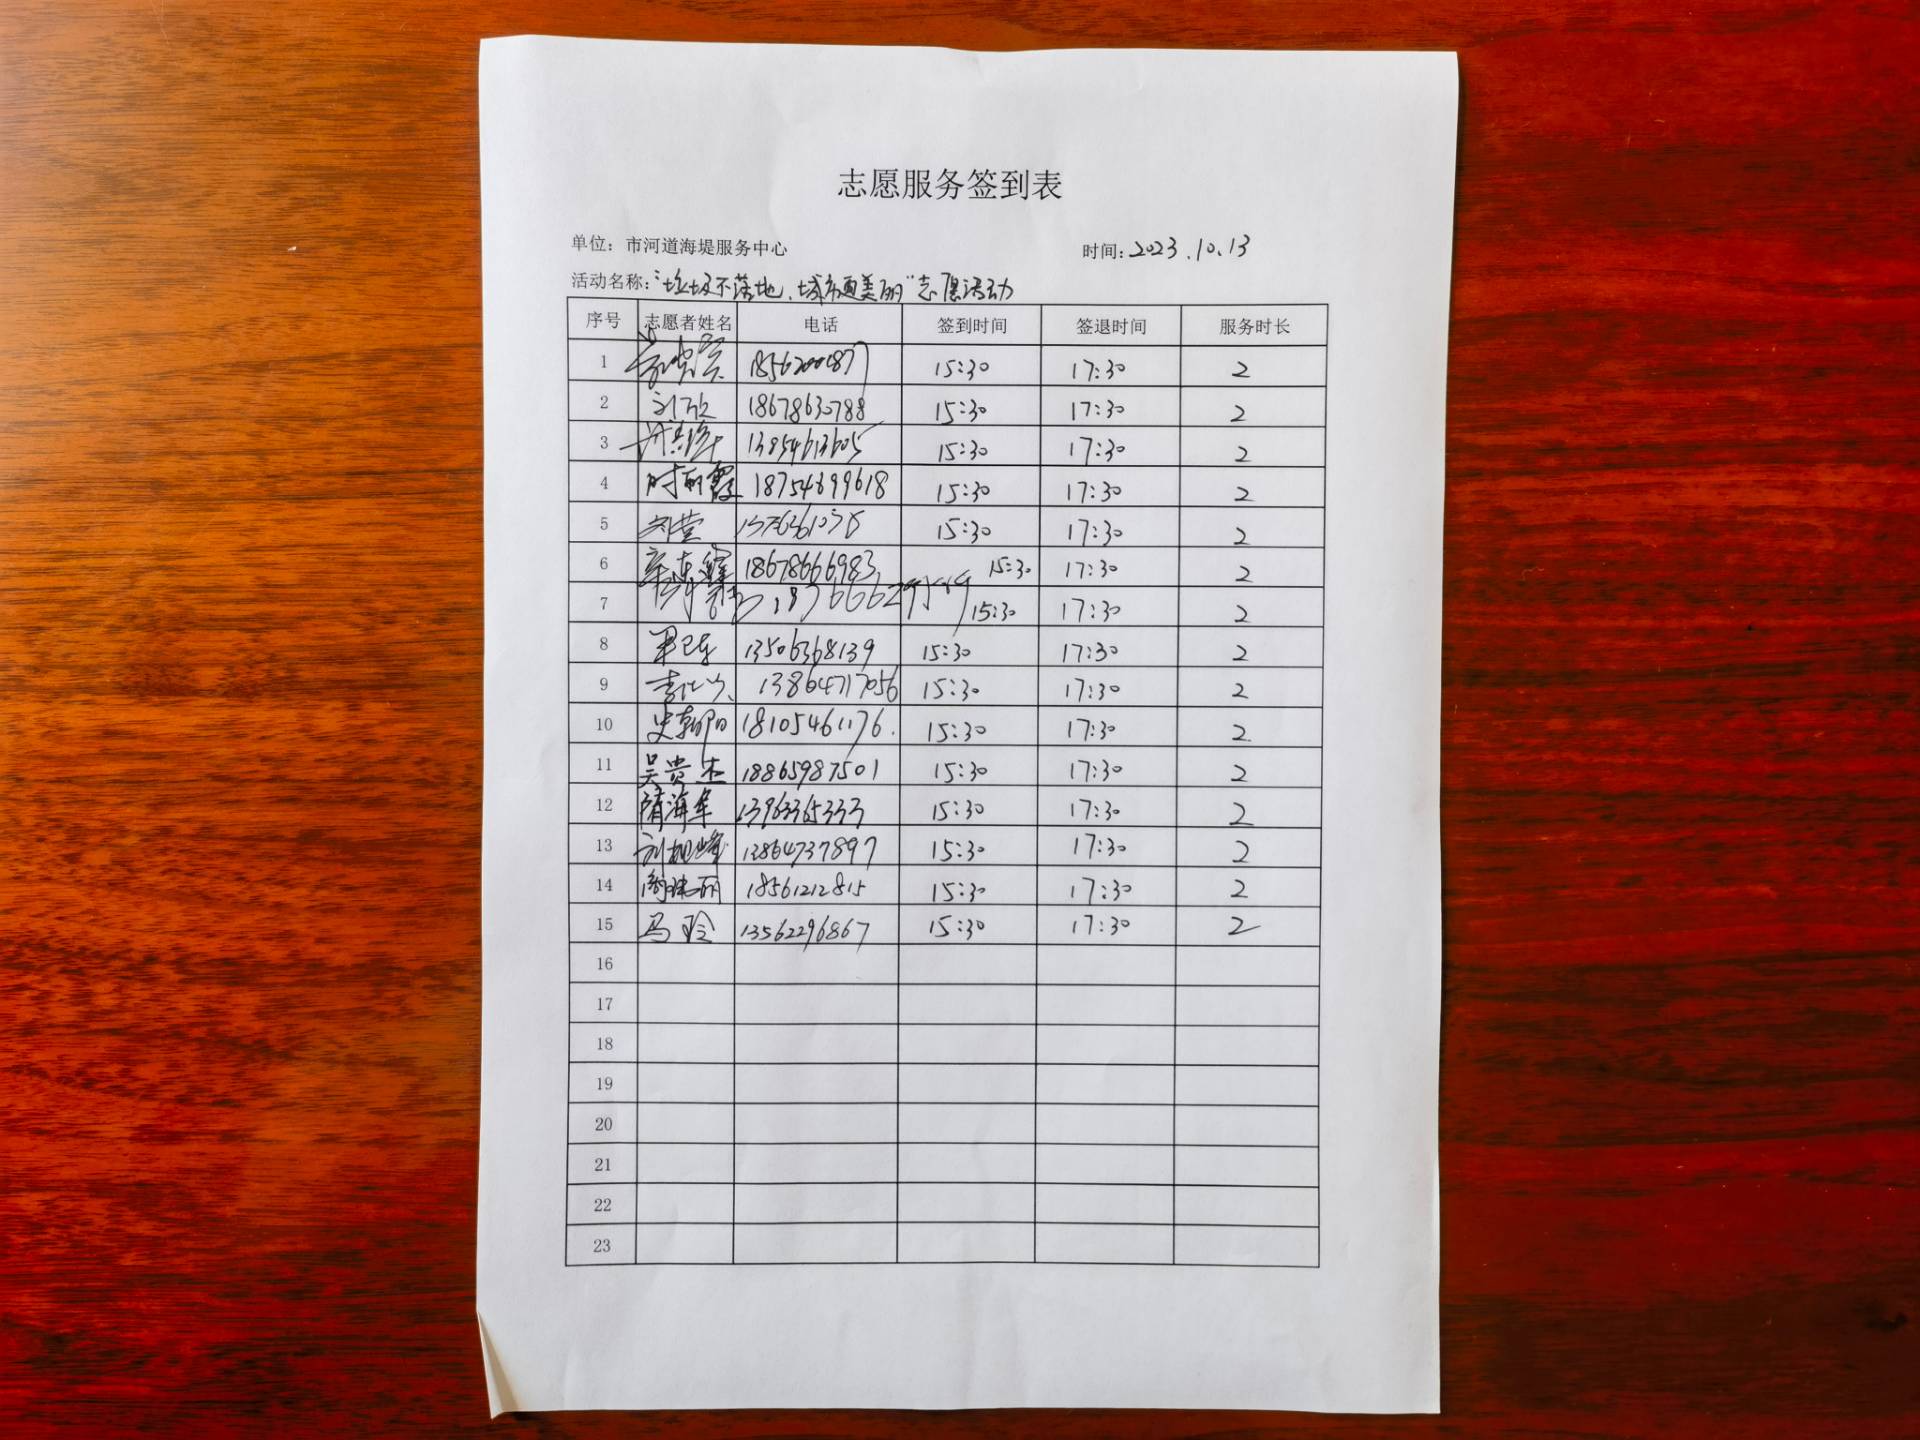 志愿服务签到表
单位：市河道海堤服务中心 时间：2023.10.13
活动名称：“垃圾不落地、城市更美丽”志愿活动
序号 志愿者姓名 电话 签到时间 签退时间 服务时长
1 15:30 17:30 2
2 刘欣 18678630788 15:30 17:30 2
3 13854613605 15:30 17:30 2
4 时丽霞 18754699618 15:30 17:30 2
5 15:30 17:30 2
6 18678666983 15:30 17:30 2
7 15:30 17:30 2
8 13506368139 15:30 17:30 2
9 13864717056 15:30 17:30 2
10 史朝阳 18105461176. 15:30 17:30 2
11 吴贵杰 18865987501 15:30 17:30 2
12 隋海军 13963365333 15:30 17:30 2
13 13864737897 15:30 17:30 2
14 18561212815 15:30 17:30 2
15 马玲 13562296867 15:30 17:30 2
16
17
18
19
20
21
22
23